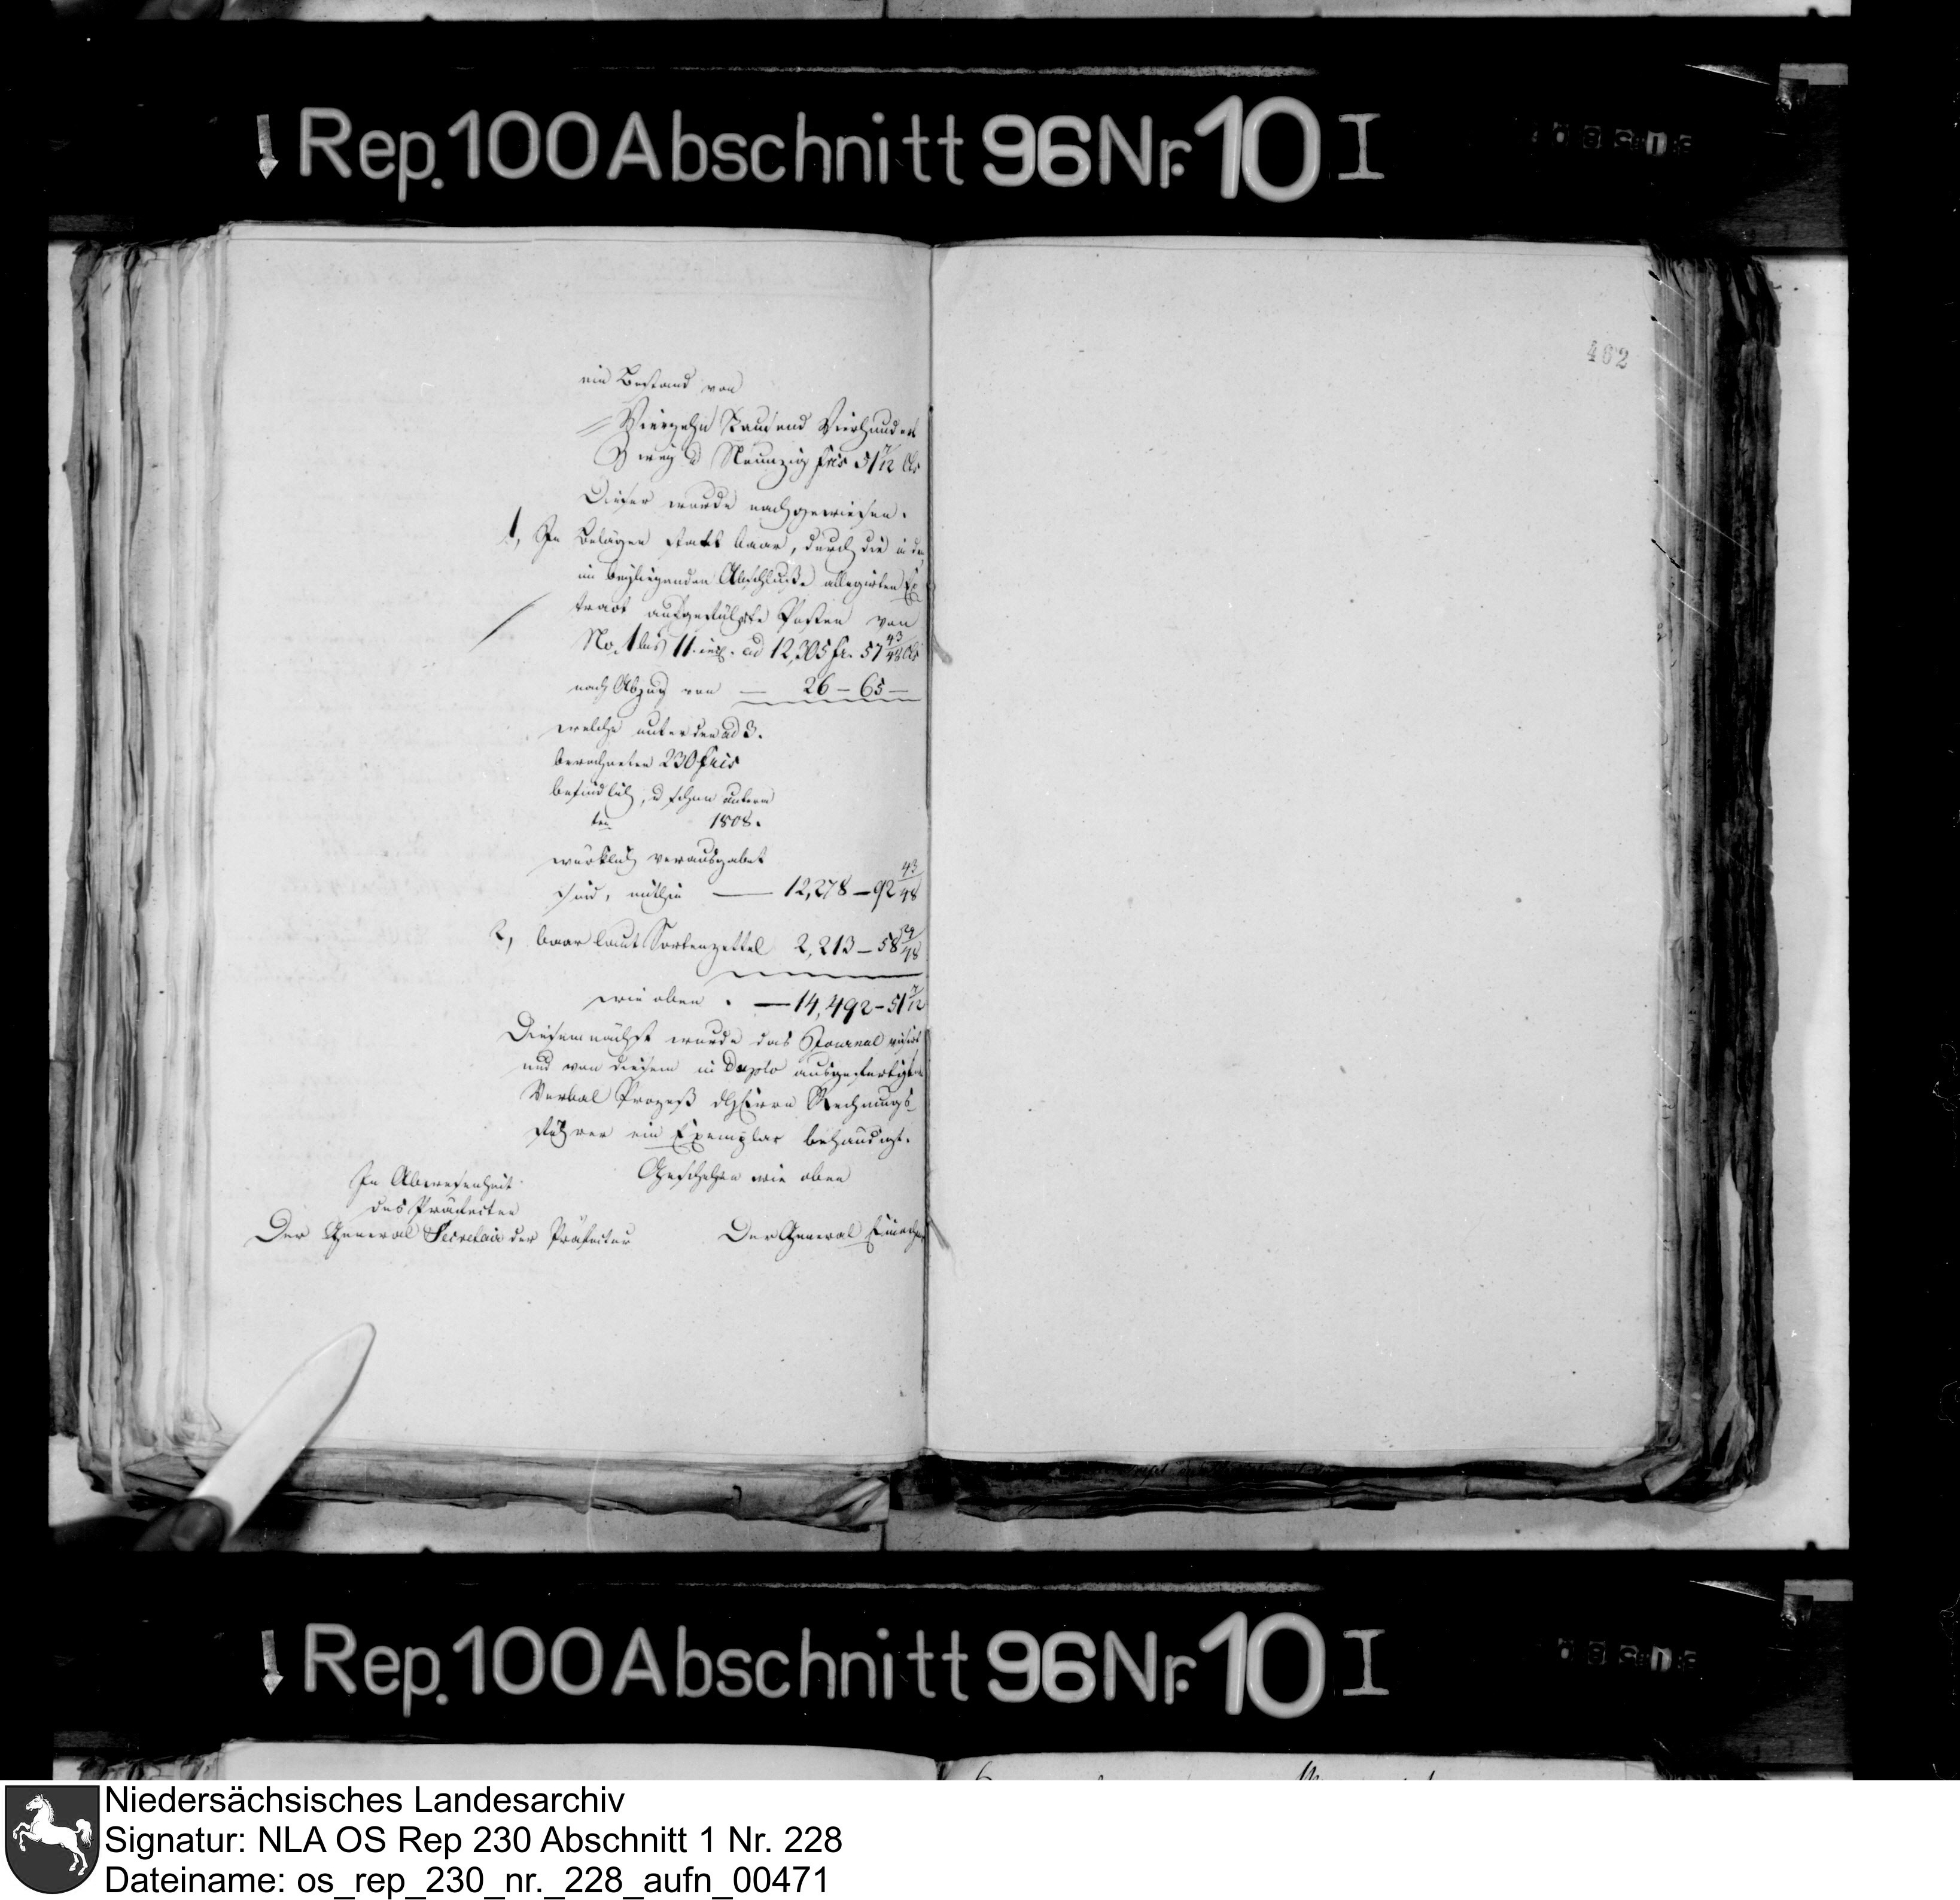 Rep. 100 Abschnitt 96 Nr. 10 I
462
ein Bestand von
Vierzehn Tausend Vierhundert
Zwey u Neunzig frcs 51 7/12 Cts
Dieser wurde nachgewiesen.
1, In Belägen statt baar, durch die in dem
im beyliegenden Abschluße allegirten Ex
tract aufgeführte Posten von
No. 1 bis 11. incl. ad 12,305 fr. 57 43/48 Cts
nach Abzug von — 26 — 65 —
welche unter den ad 3.
berechneten 230 frcs
befindlich, u schon unterm
ten 1808.
würklich verausgabet
sind, mithin — 12,278 — 92 43/48
2, baar laut Sortenzettel 2,213 — 58 /48
wie oben . — 14,492 — 51 7/12
Diesemnächst wurde das Journal visirt
und von diesem in Duplo ausgefertigten
Verbal Prozeß Herrn Rechnungs-
führer ein Exemplar behändigt.
Geschehen wie oben
In Abwesenheit
des Präfecten
Der General Secretair der Präfectur
Der General
Rep. 100 Abschnitt 96 Nr. 10 I
Niedersächsisches Landesarchiv
Signatur: NLA OS Rep 230 Abschnitt 1 Nr. 228
Dateiname: os_rep_230_nr._228_aufn_00471